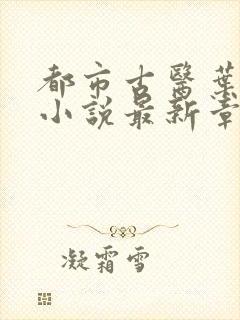 都市古醫葉
小說最新章
凝霜雪